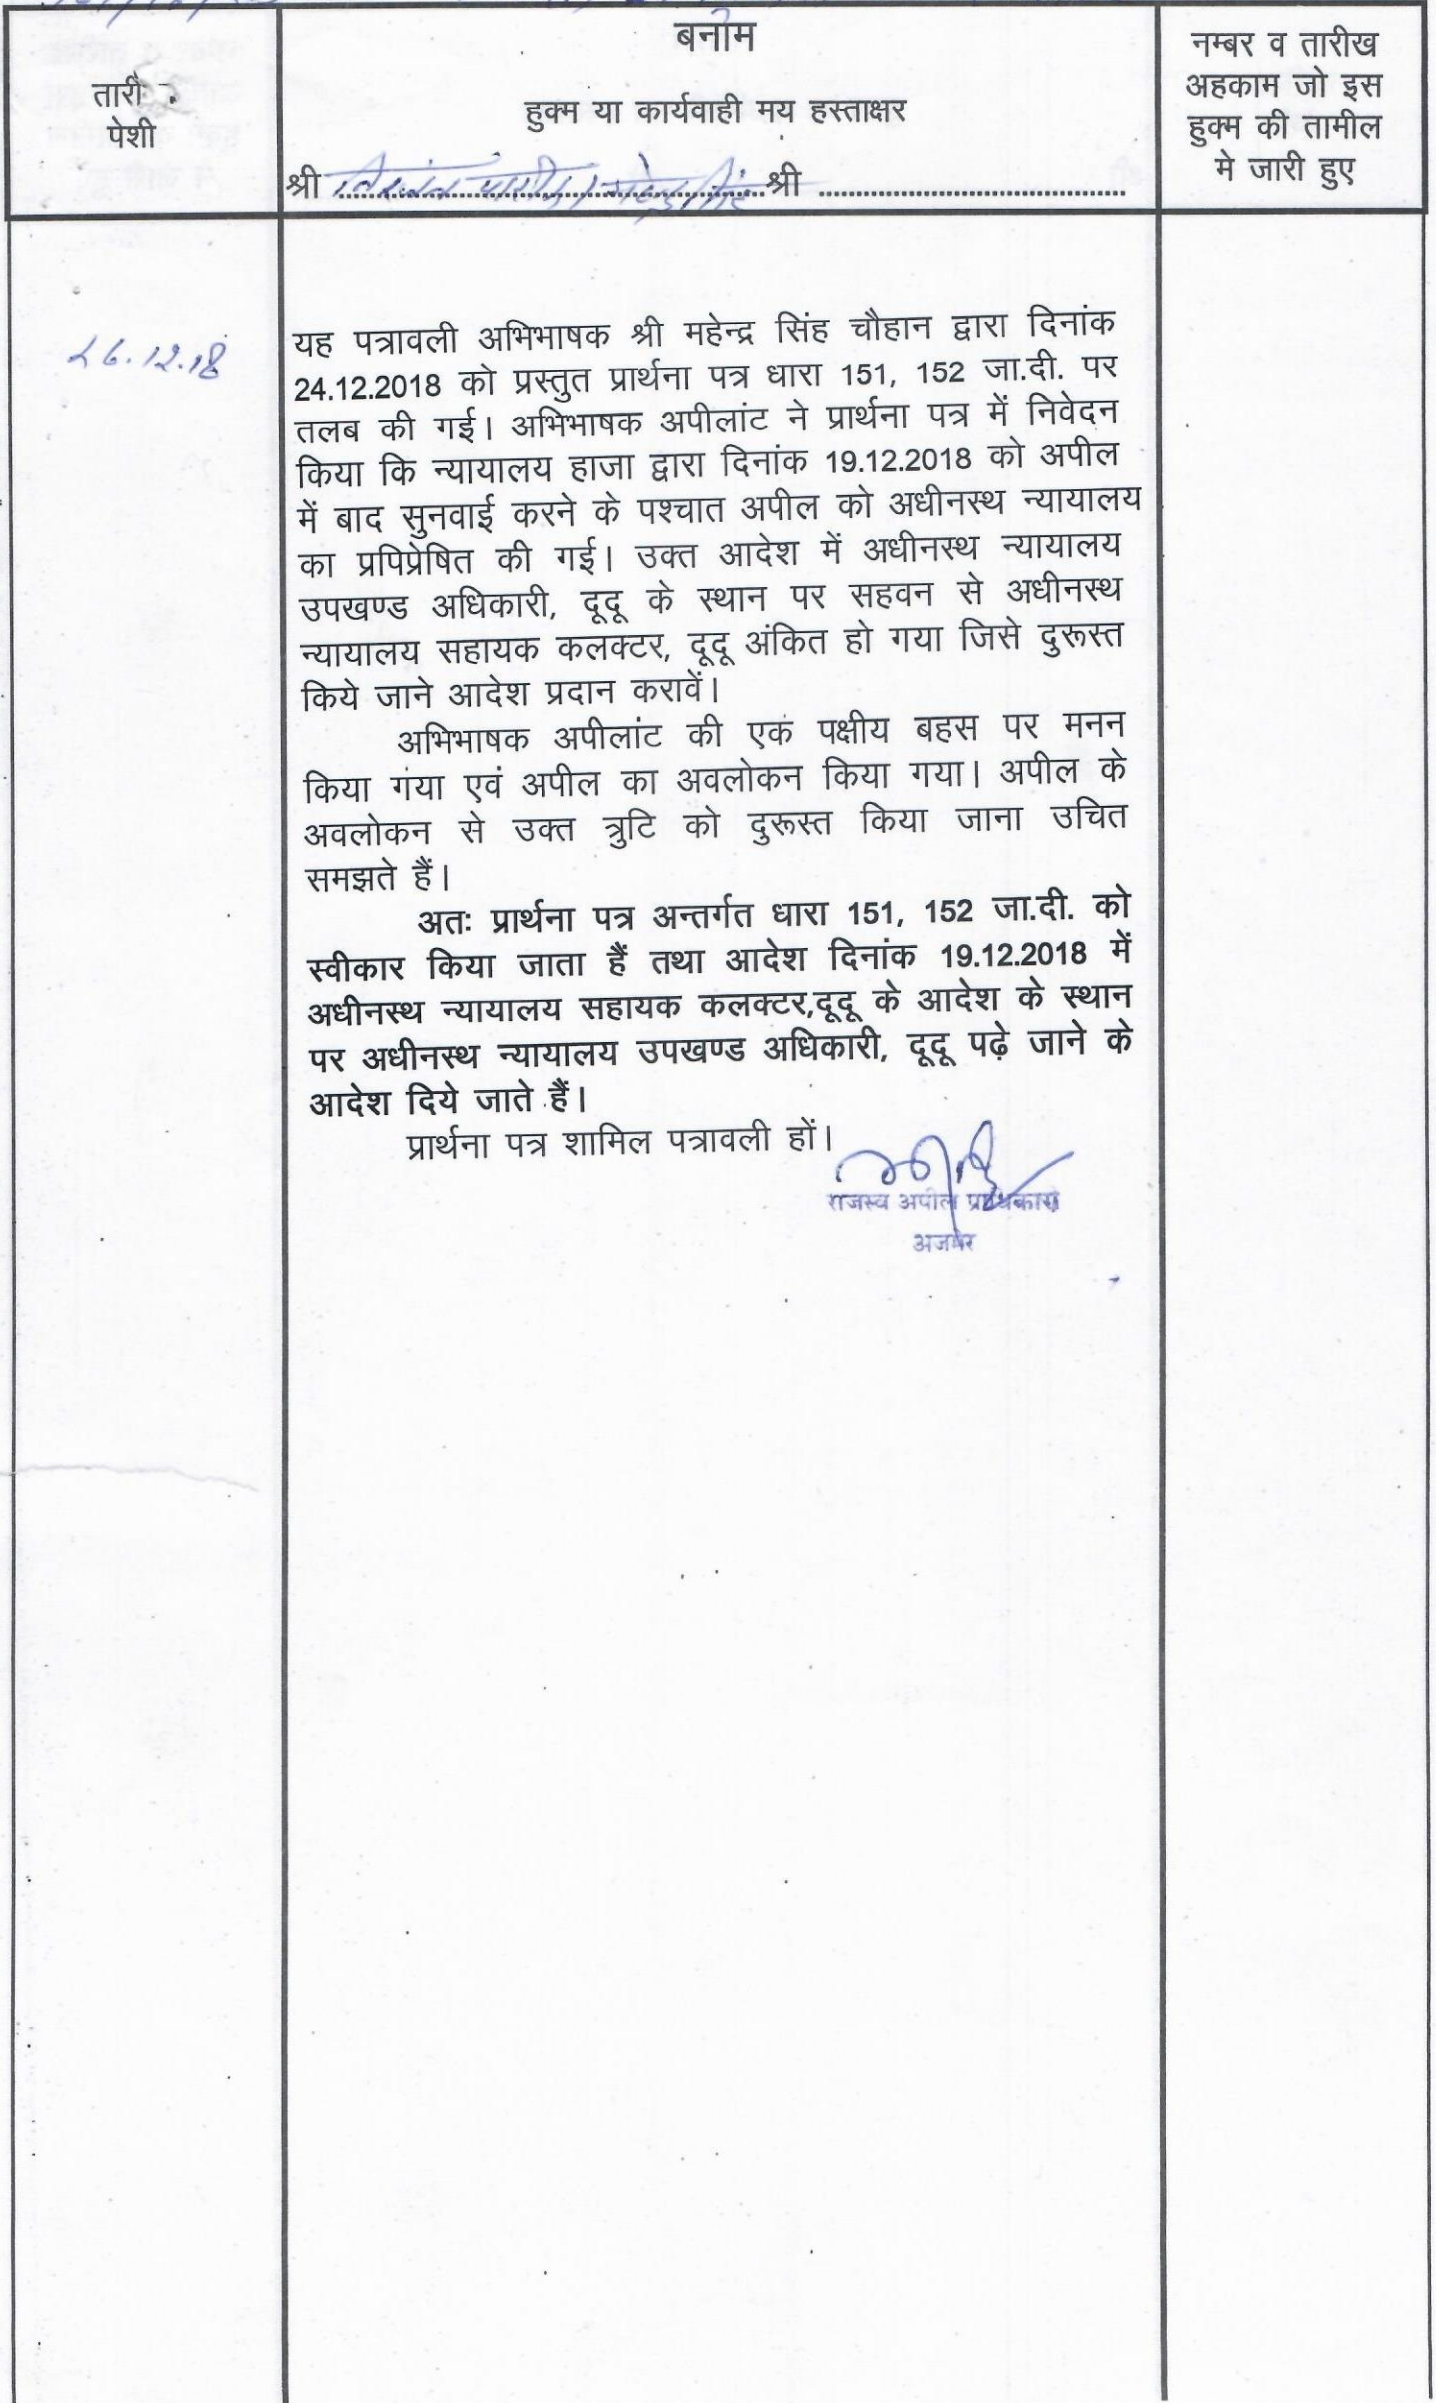 बनाम
तारी
पेशी
हुक्म या कार्यवाही मय हस्ताक्षर
श्री ........ श्री ........
नम्बर व तारीख
अहकाम जो इस
हुक्म की तामील
मे जारी हुए
26.12.18
यह पत्रावली अभिभाषक श्री महेन्द्र सिंह चौहान द्वारा दिनांक
24.12.2018 को प्रस्तुत प्रार्थना पत्र धारा 151, 152 जा.दी. पर
तलब की गई। अभिभाषक अपीलांट ने प्रार्थना पत्र में निवेदन
किया कि न्यायालय हाजा द्वारा दिनांक 19.12.2018 को अपील
में बाद सुनवाई करने के पश्चात अपील को अधीनस्थ न्यायालय
का प्रपिप्रेषित की गई। उक्त आदेश में अधीनस्थ न्यायालय
उपखण्ड अधिकारी, दूदू के स्थान पर सहवन से अधीनस्थ
न्यायालय सहायक कलक्टर, दूदू अंकित हो गया जिसे दुरूस्त
किये जाने आदेश प्रदान करावें।
अभिभाषक अपीलांट की एक पक्षीय बहस पर मनन
किया गया एवं अपील का अवलोकन किया गया। अपील के
अवलोकन से उक्त त्रुटि को दुरूस्त किया जाना उचित
समझते हैं।
अतः प्रार्थना पत्र अन्तर्गत धारा 151, 152 जा.दी. को
स्वीकार किया जाता हैं तथा आदेश दिनांक 19.12.2018 में
अधीनस्थ न्यायालय सहायक कलक्टर,दूदू के आदेश के स्थान
पर अधीनस्थ न्यायालय उपखण्ड अधिकारी, दूदू पढ़े जाने के
आदेश दिये जाते हैं।
प्रार्थना पत्र शामिल पत्रावली हों।
राजस्व अपील प्राधिकारी
अजमेर